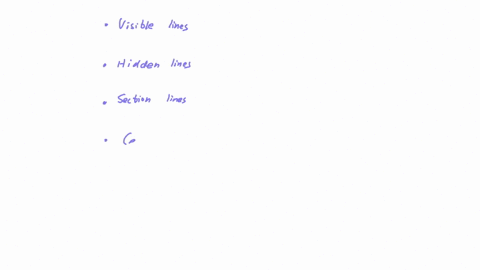 • Visible lines
• Hidden lines
• Section lines
• Ce